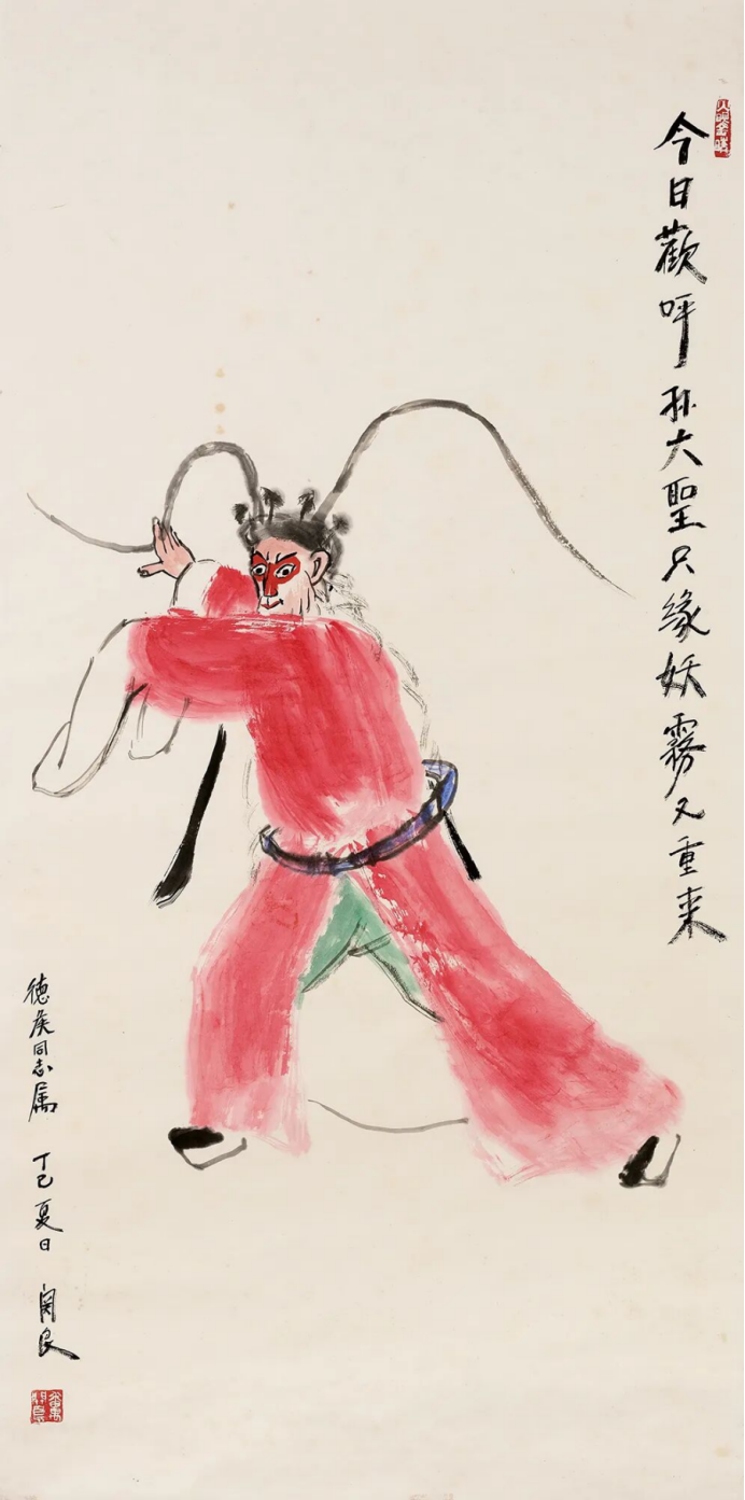 今日歡呼孫大聖只緣妖霧又重来
德侯同志属
丁巳夏日 関良